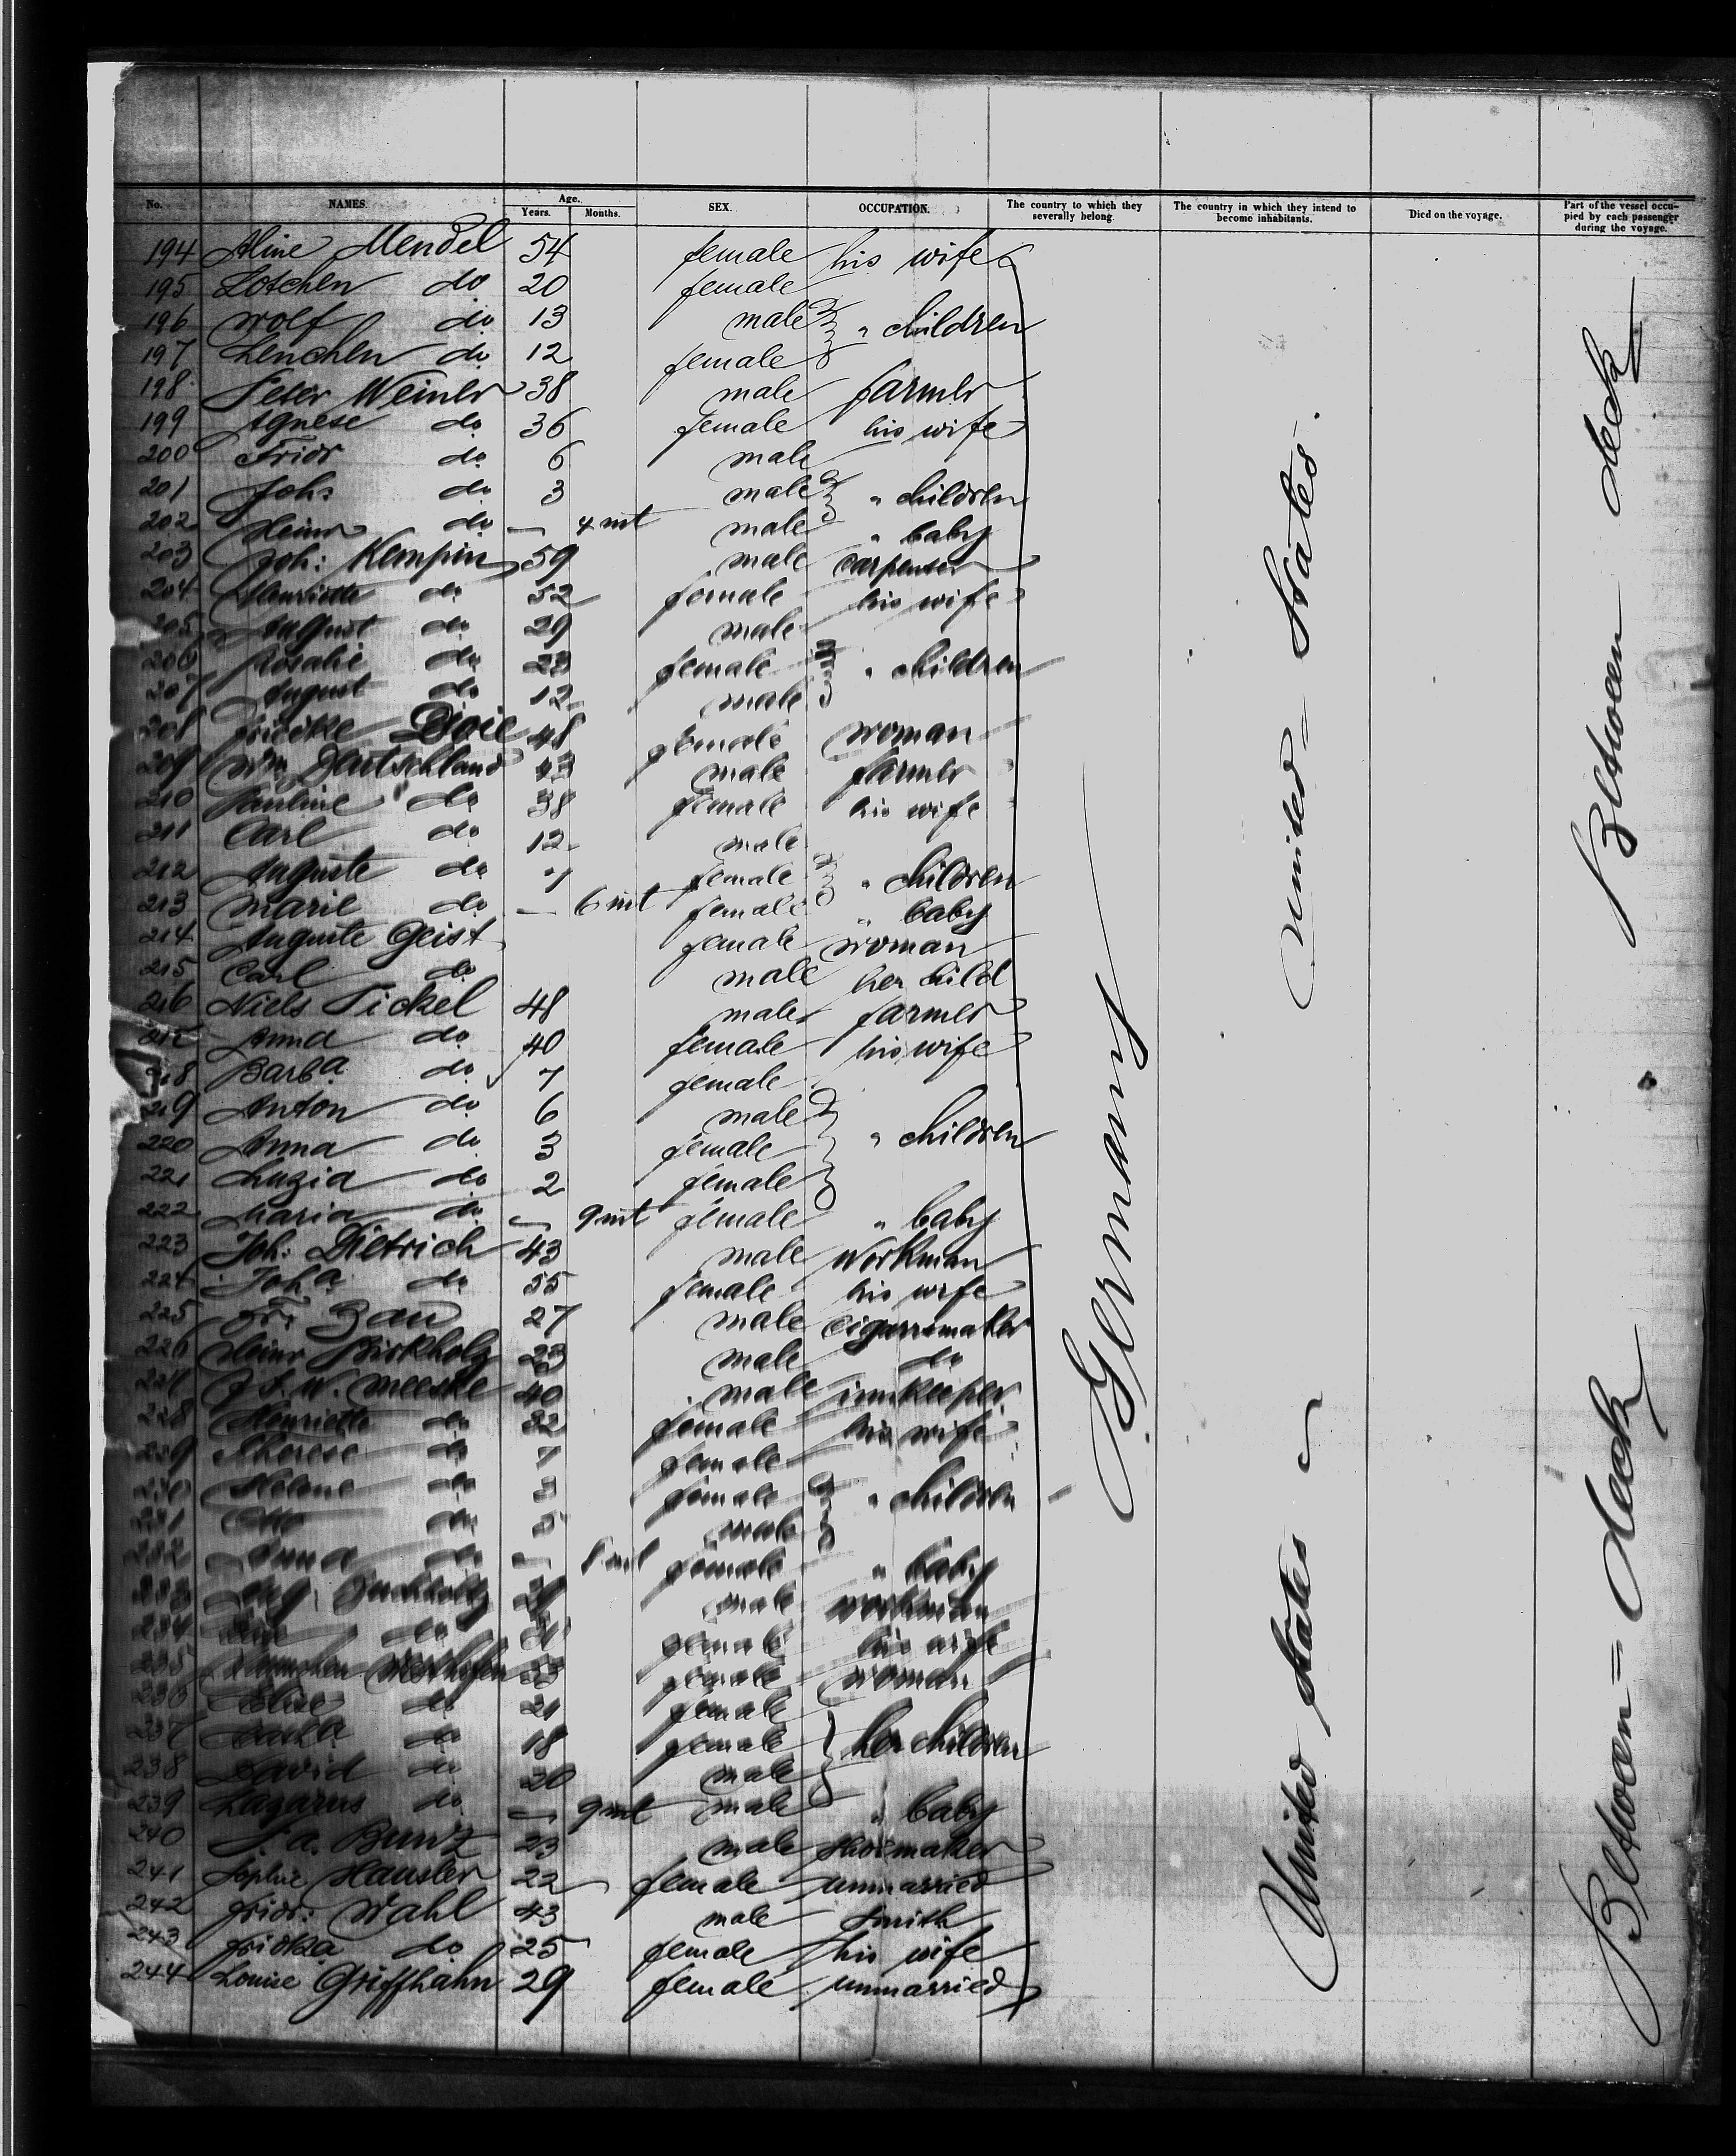 No. NAMES. Age. Years. Months. SEX. OCCUPATION. The country to which they severally belong. The country in which they intend to become inhabitants. Died on the voyage. Part of the vessel occupied by each passenger during the voyage.
194 Aline Mendel 54 female his wife
195 Lotchen do 20 female
196 Wolf do 13 male " children
197 Lenchen do 12 female
198 Peter Weiner 38 male farmer
199 Agnese do 36 female his wife
200 Friдr do 6 male
201 Johs do 3 male " children
202 Heinr do — 4 mt male " baby
203 Joh: Kempin 59 male carpenter
204 Henriette do 52 female his wife
205 August do 29 male
206 Rosalie do 23 female " children
207 August do 12 male
208 48 female woman
209 Wm Deutschland 43 male farmer
210 Pauline do 38 female his wife
211 Carl do 12 male
212 Auguste do 7 female " children
213 Marie do — 6 mt female " baby
214 Auguste Geist female woman
215 Carl do male her child
216 Niels Pickel 48 male farmer
217 Anna do 40 female his wife
218 Barba do 7 female
219 Anton do 6 male
220 Anna do 3 female " children
221 Luzia do 2 female
222 Maria do — 9 mt female " baby
223 Joh: Dietrich 43 male Workman
224 Joha do 55 female his wife
225 Fr: Zau 27 male cigarrsmaker
226 Heinr Birkholz 23 male do
227 W. Meeske 40 male innkeeper
228 Henriette do 32 female his wife
229 Therese do 7 female
230 Helene do female " children
231 Otto do male
232 Anna do — female " baby
233 Buchholz male workman
234 do female his wife
235 33 female woman
236 Elise do 21 female
237 do 18 female her children
238 David do 20 male
239 Lazarus do — 9 mt male " baby
240 Bunz 23 male shoemaker
241 Sophie Hausler 22 female unmarried
242 Fridr: Wahl 43 male smith
243 Fridka do 25 female his wife
244 Louise Griffhahn 29 female unmarried
Germany
United States
United States
Between deck
Between = deck